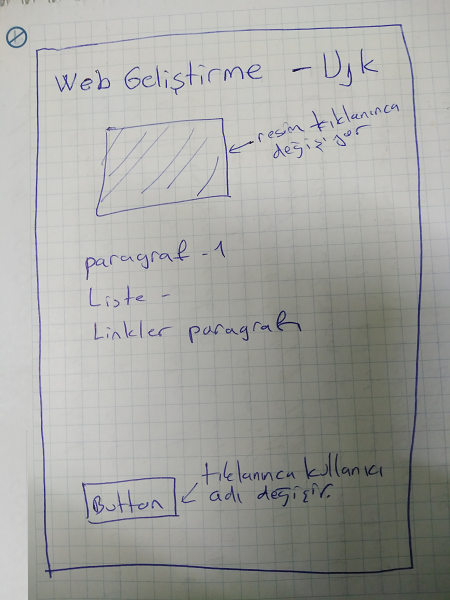 Web Geliştirme - Ujk
resim tıklanınca
değişiyor
paragraf - 1
Liste -
Linkler paragrafı
tıklanınca kullanıcı
adı değişir.
Button